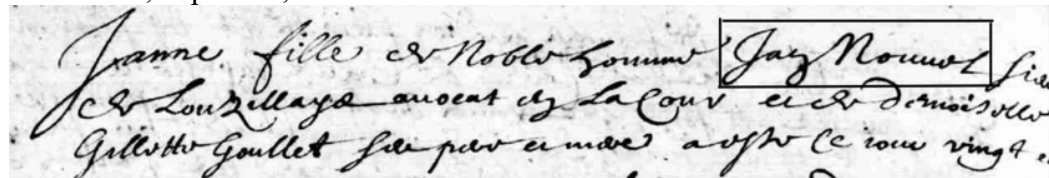 Janne fille de Noble homme Jan Nouuel sieu
de Louzillaye auocat en La Cour et de damoiselle
Gillette Goullet ses pere et mere a este ce iour vingt e